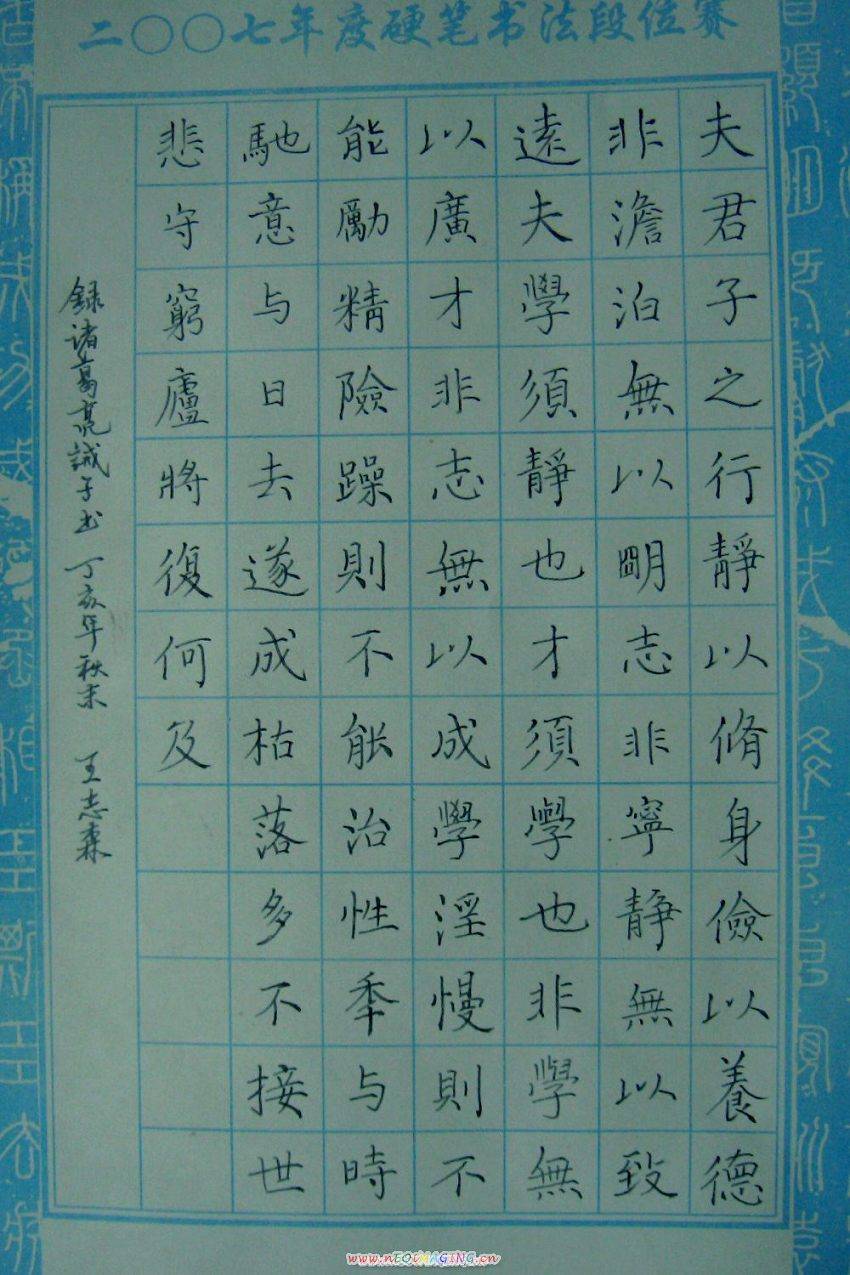 二〇〇七年度硬笔书法段位赛
夫君子之行靜以脩身儉以養德
非澹泊無以明志非寧静無以致
遠夫學須靜也才須學也非學無
以廣才非志無以成學淫慢則不
能勵精險躁則不能治性年与時
馳意与日去遂成枯落多不接世
悲守窮廬將復何及
録诸葛亮誡子书 丁亥年秋末 王志森
www.nEOiMAGING.cn